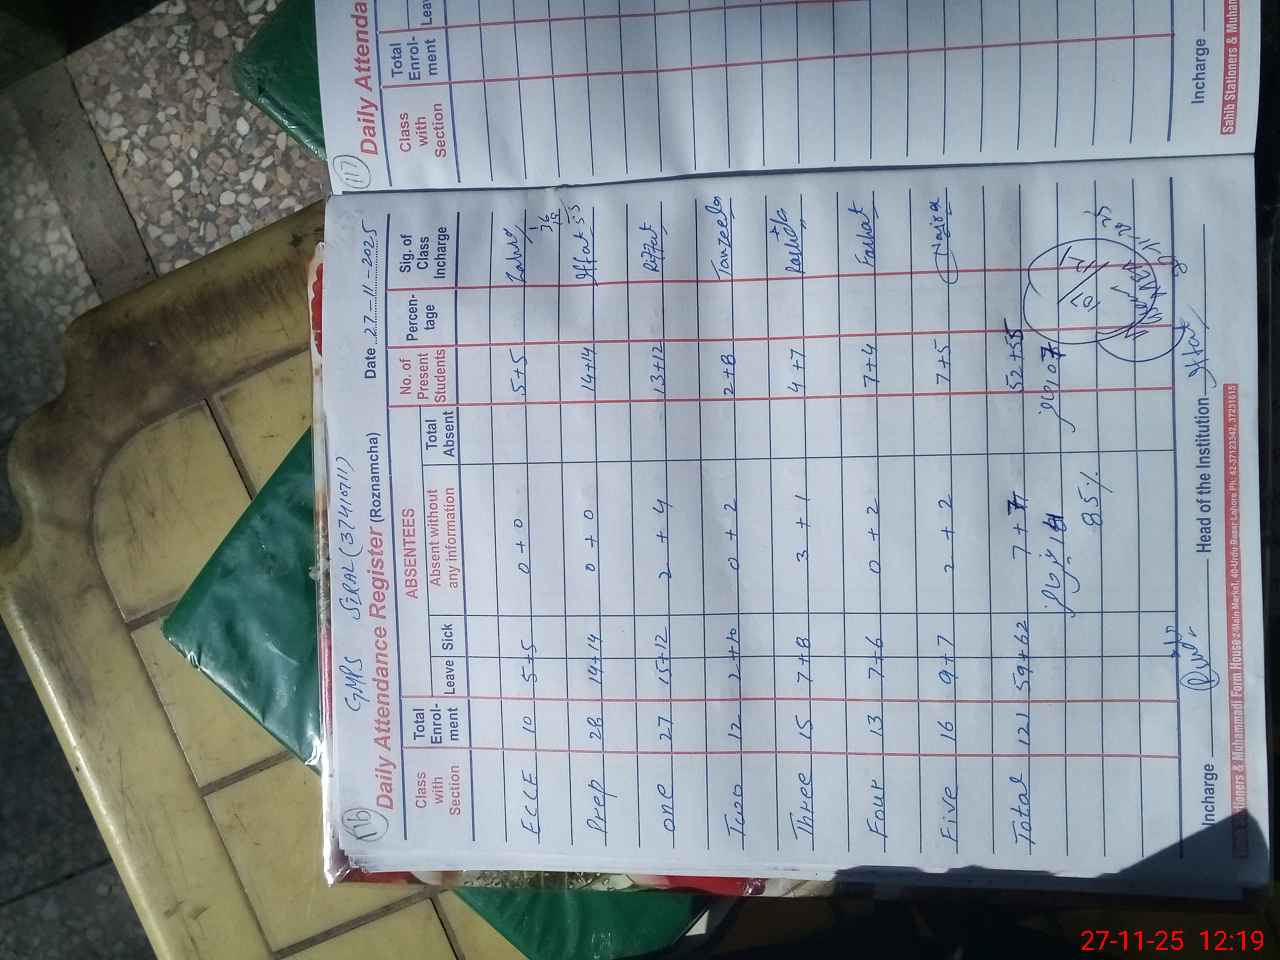 116
GMPS SERAL (37410711)
Date 27-11-2025
Daily Attendance Register (Roznamcha)
Class with Section Total Enrol-ment ABSENTEES No. of Present Students Percen-tage Sig. of Class Incharge
Leave Sick Absent without any information Total Absent
ECCE 10 5+5 0+0 5+5
Prep 28 14+14 0+0 14+14 Iffat
one 27 15+12 2+4 13+12 Riffat
Two 12 2+10 0+2 2+8 Tanzeela
Three 15 7+8 3+1 4+7 Rashida
Four 13 7+6 0+2 7+4 Farhat
Five 16 9+7 2+2 7+5
Total 121 59+62 7+7 52+55
107
85%
Incharge Head of the Institution Iffat
Stationers & Muhammadi Form House 2-Main Market, 40-Urdu Bazar Lahore Ph: 42-37123542, 37231615
117
Daily Attenda
Class with Section Total Enrol-ment Lea
Incharge
Sahib Stationers & Muham
27-11-25 12:19